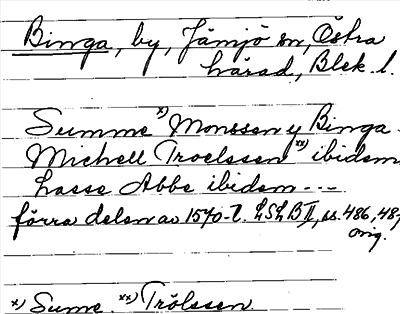 Binga, by, Jämjö sn, Östra
härad, Blek. l.
Summe x) Monssen y Binga -
Michell Troelssen xx) ibidem
Lasse Abbe ibidem ---
förra delen av 1570-t. LSLB II, ss. 486, 487
orig.
x) Sume. xx) Trölssen.